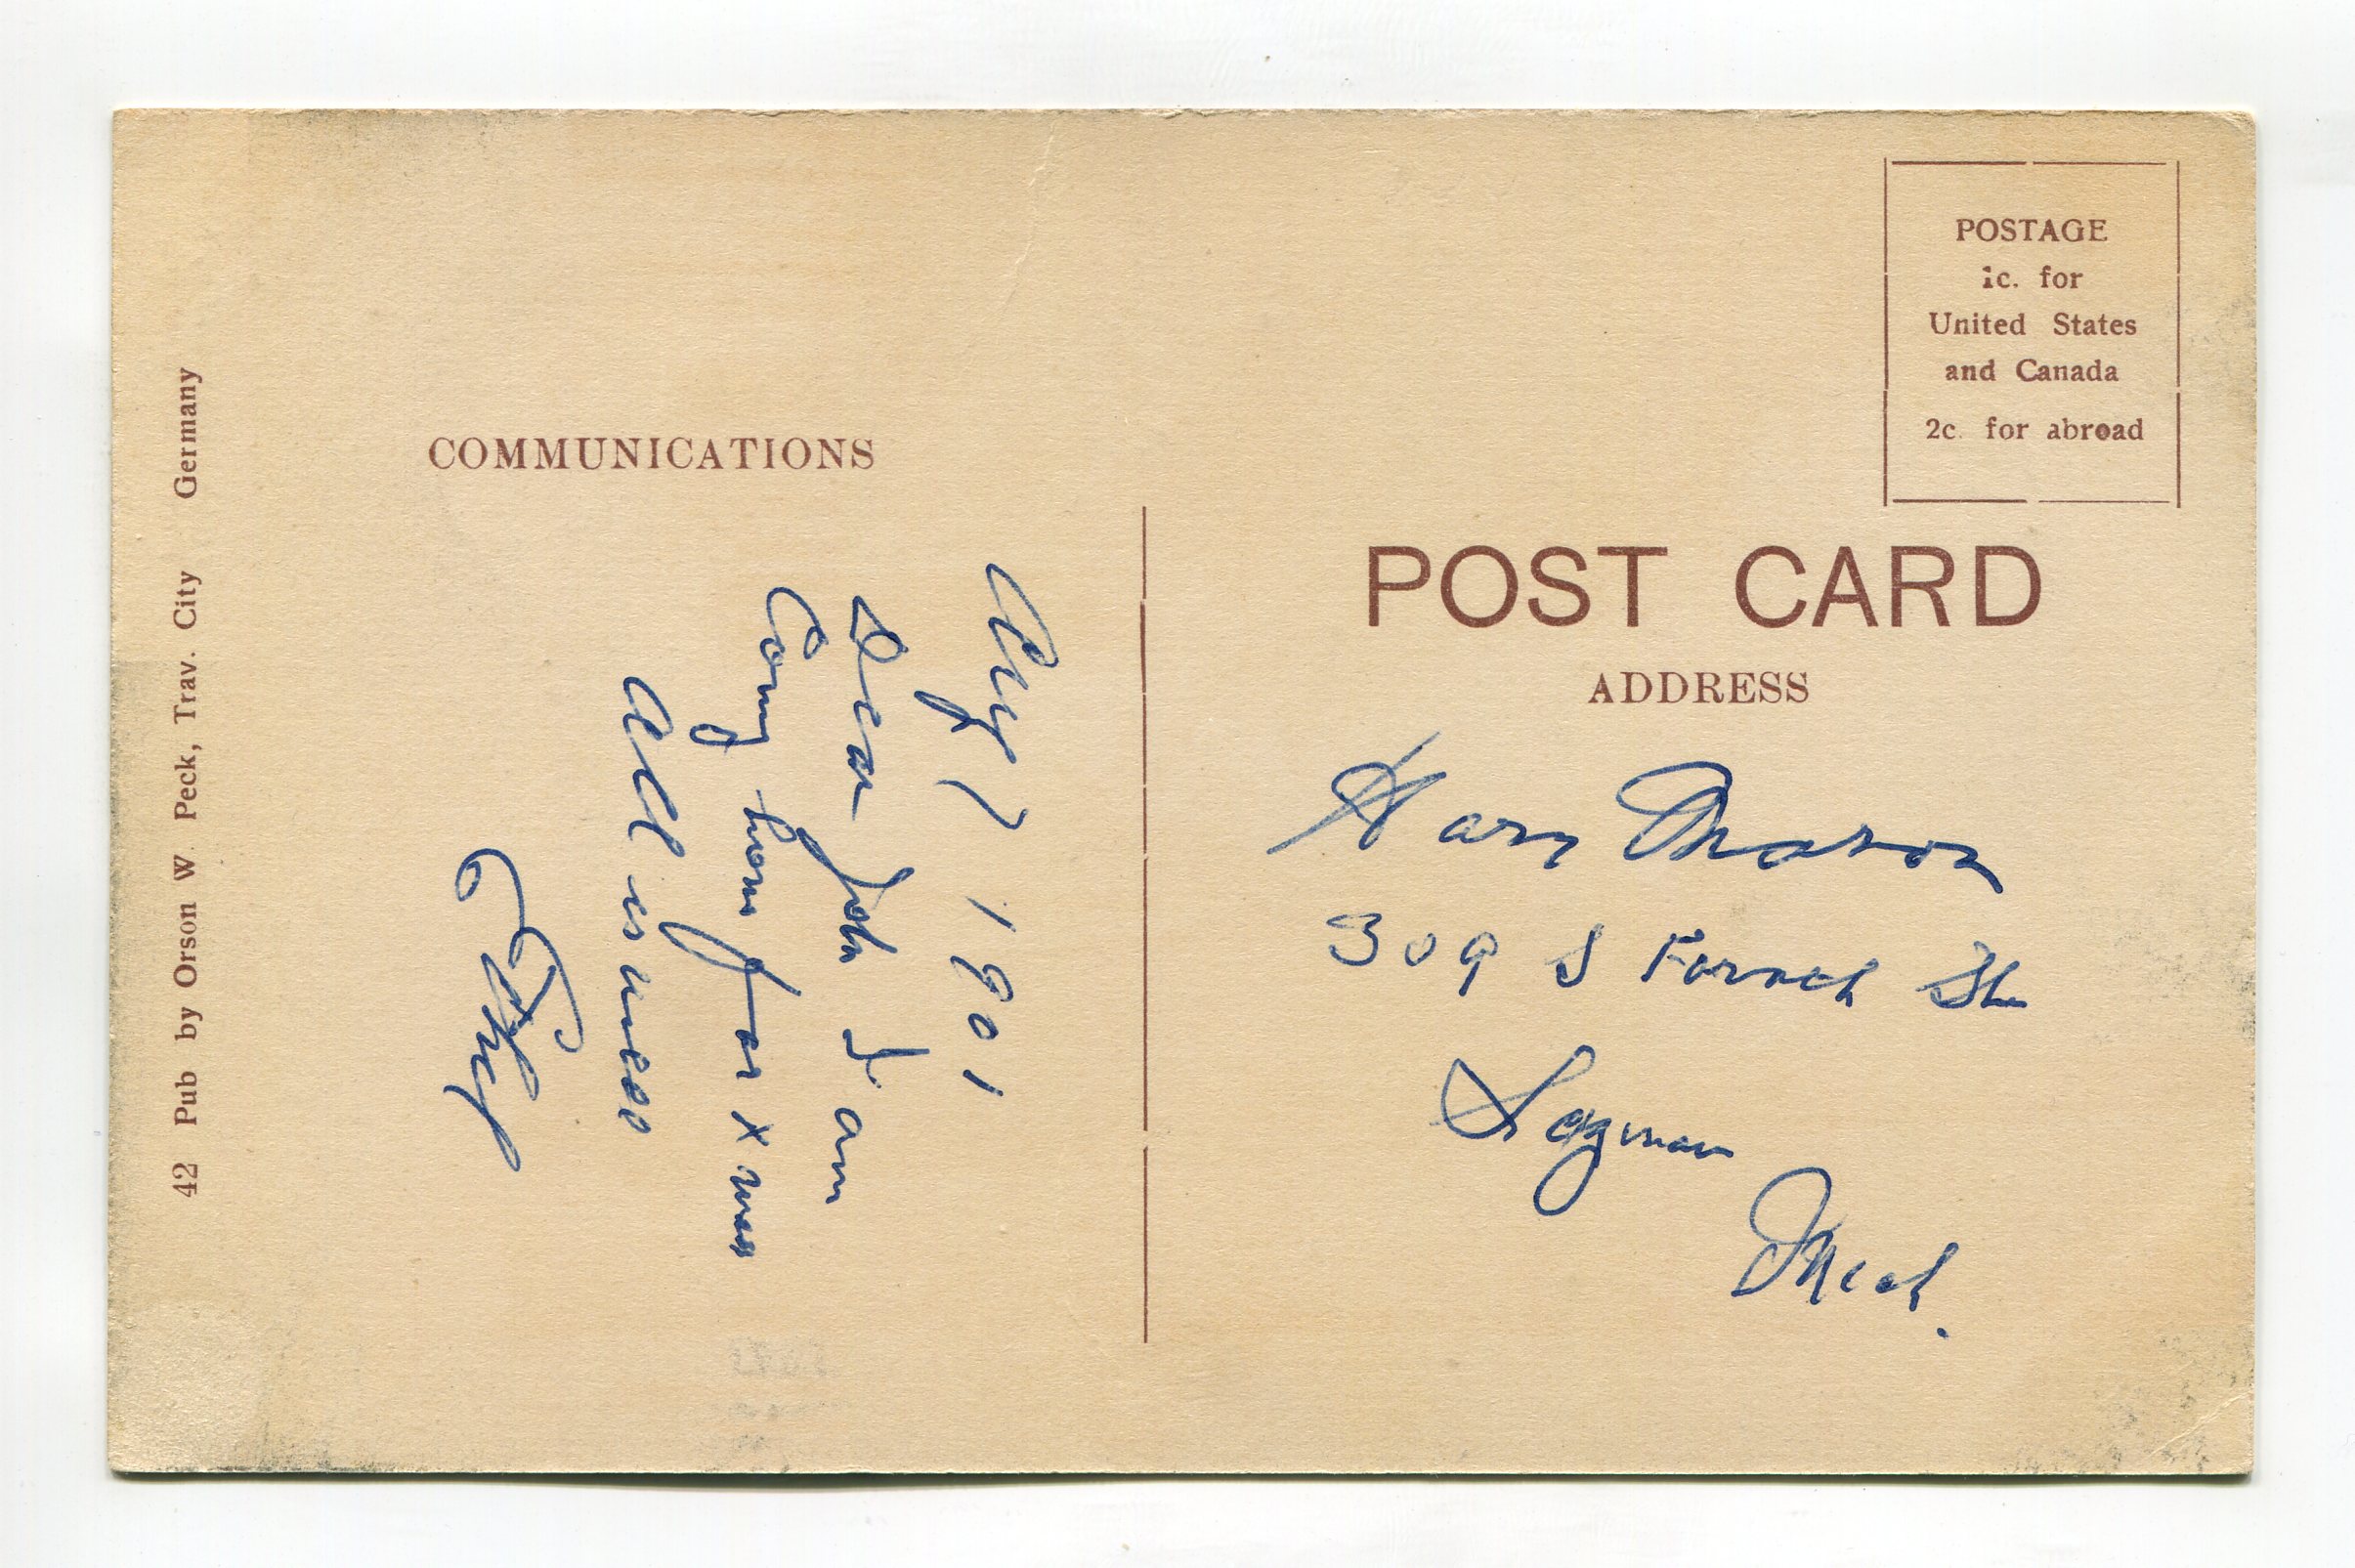 COMMUNICATIONS
Aug 7 1901
Dear John I am
Coming home for xmas
All is well
42 Pub by Orson W. Peck, Trav. City Germany
POSTAGE
1c. for
United States
and Canada
2c. for abroad
POST CARD
ADDRESS
Mason
309 S St
Saginaw
Mich.